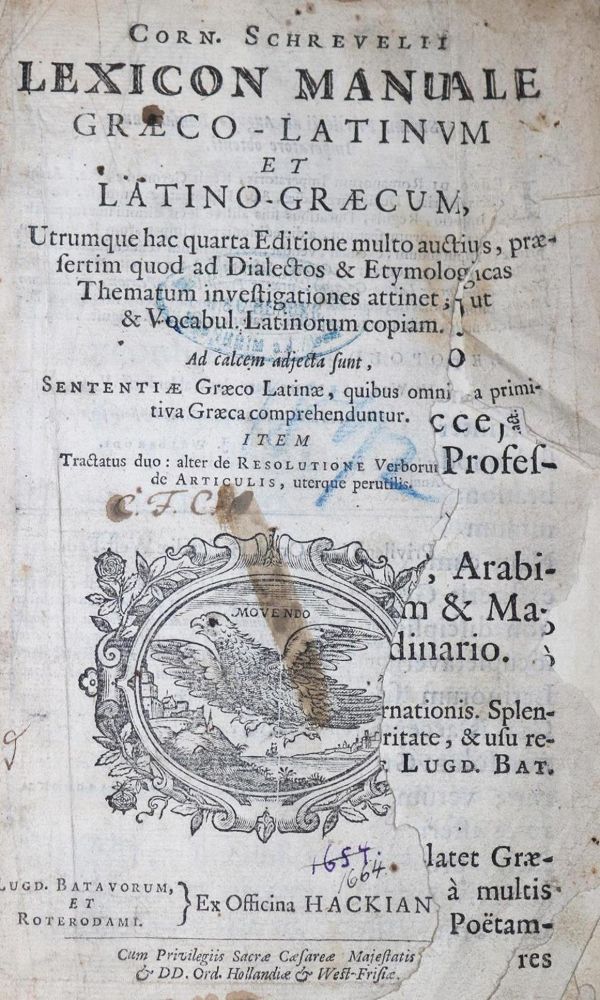 CORN. SCHREVELII
LEXICON MANUALE
GRÆCO-LATINVM
ET
LATINO-GRÆCUM,
Utrumque hac quarta Editione multo auctius, præ-
ſertim quod ad Dialectos & Etymologicas
Thematum inveſtigationes attinet, ut
& Vocabul. Latinorum copiam.
Ad calcem adjecta ſunt,
SENTENTIÆ Græco Latinæ, quibus omni a primi-
tiva Græca comprehenduntur.
cce, act.
ITEM
Tractatus duo: alter de RESOLUTIONE Verborum
Profeſ-
de ARTICULIS, uterque perutilis.
C.F.C.
, Arabi-
MOVENDO
m & Ma-
dinario.
rnationis. Splen-
ritate, & uſu re-
LUGD. BAT.
1654.
1664.
latet Græ-
LUGD. BATAVORUM,
ET
ROTERODAMI.
Ex Officina HACKIAN
à multis
Poëtam-
res
Cum Privilegiis Sacræ Cæſareæ Majeſtatis
& DD. Ord. Hollandiæ & Weſt-Friſiæ.